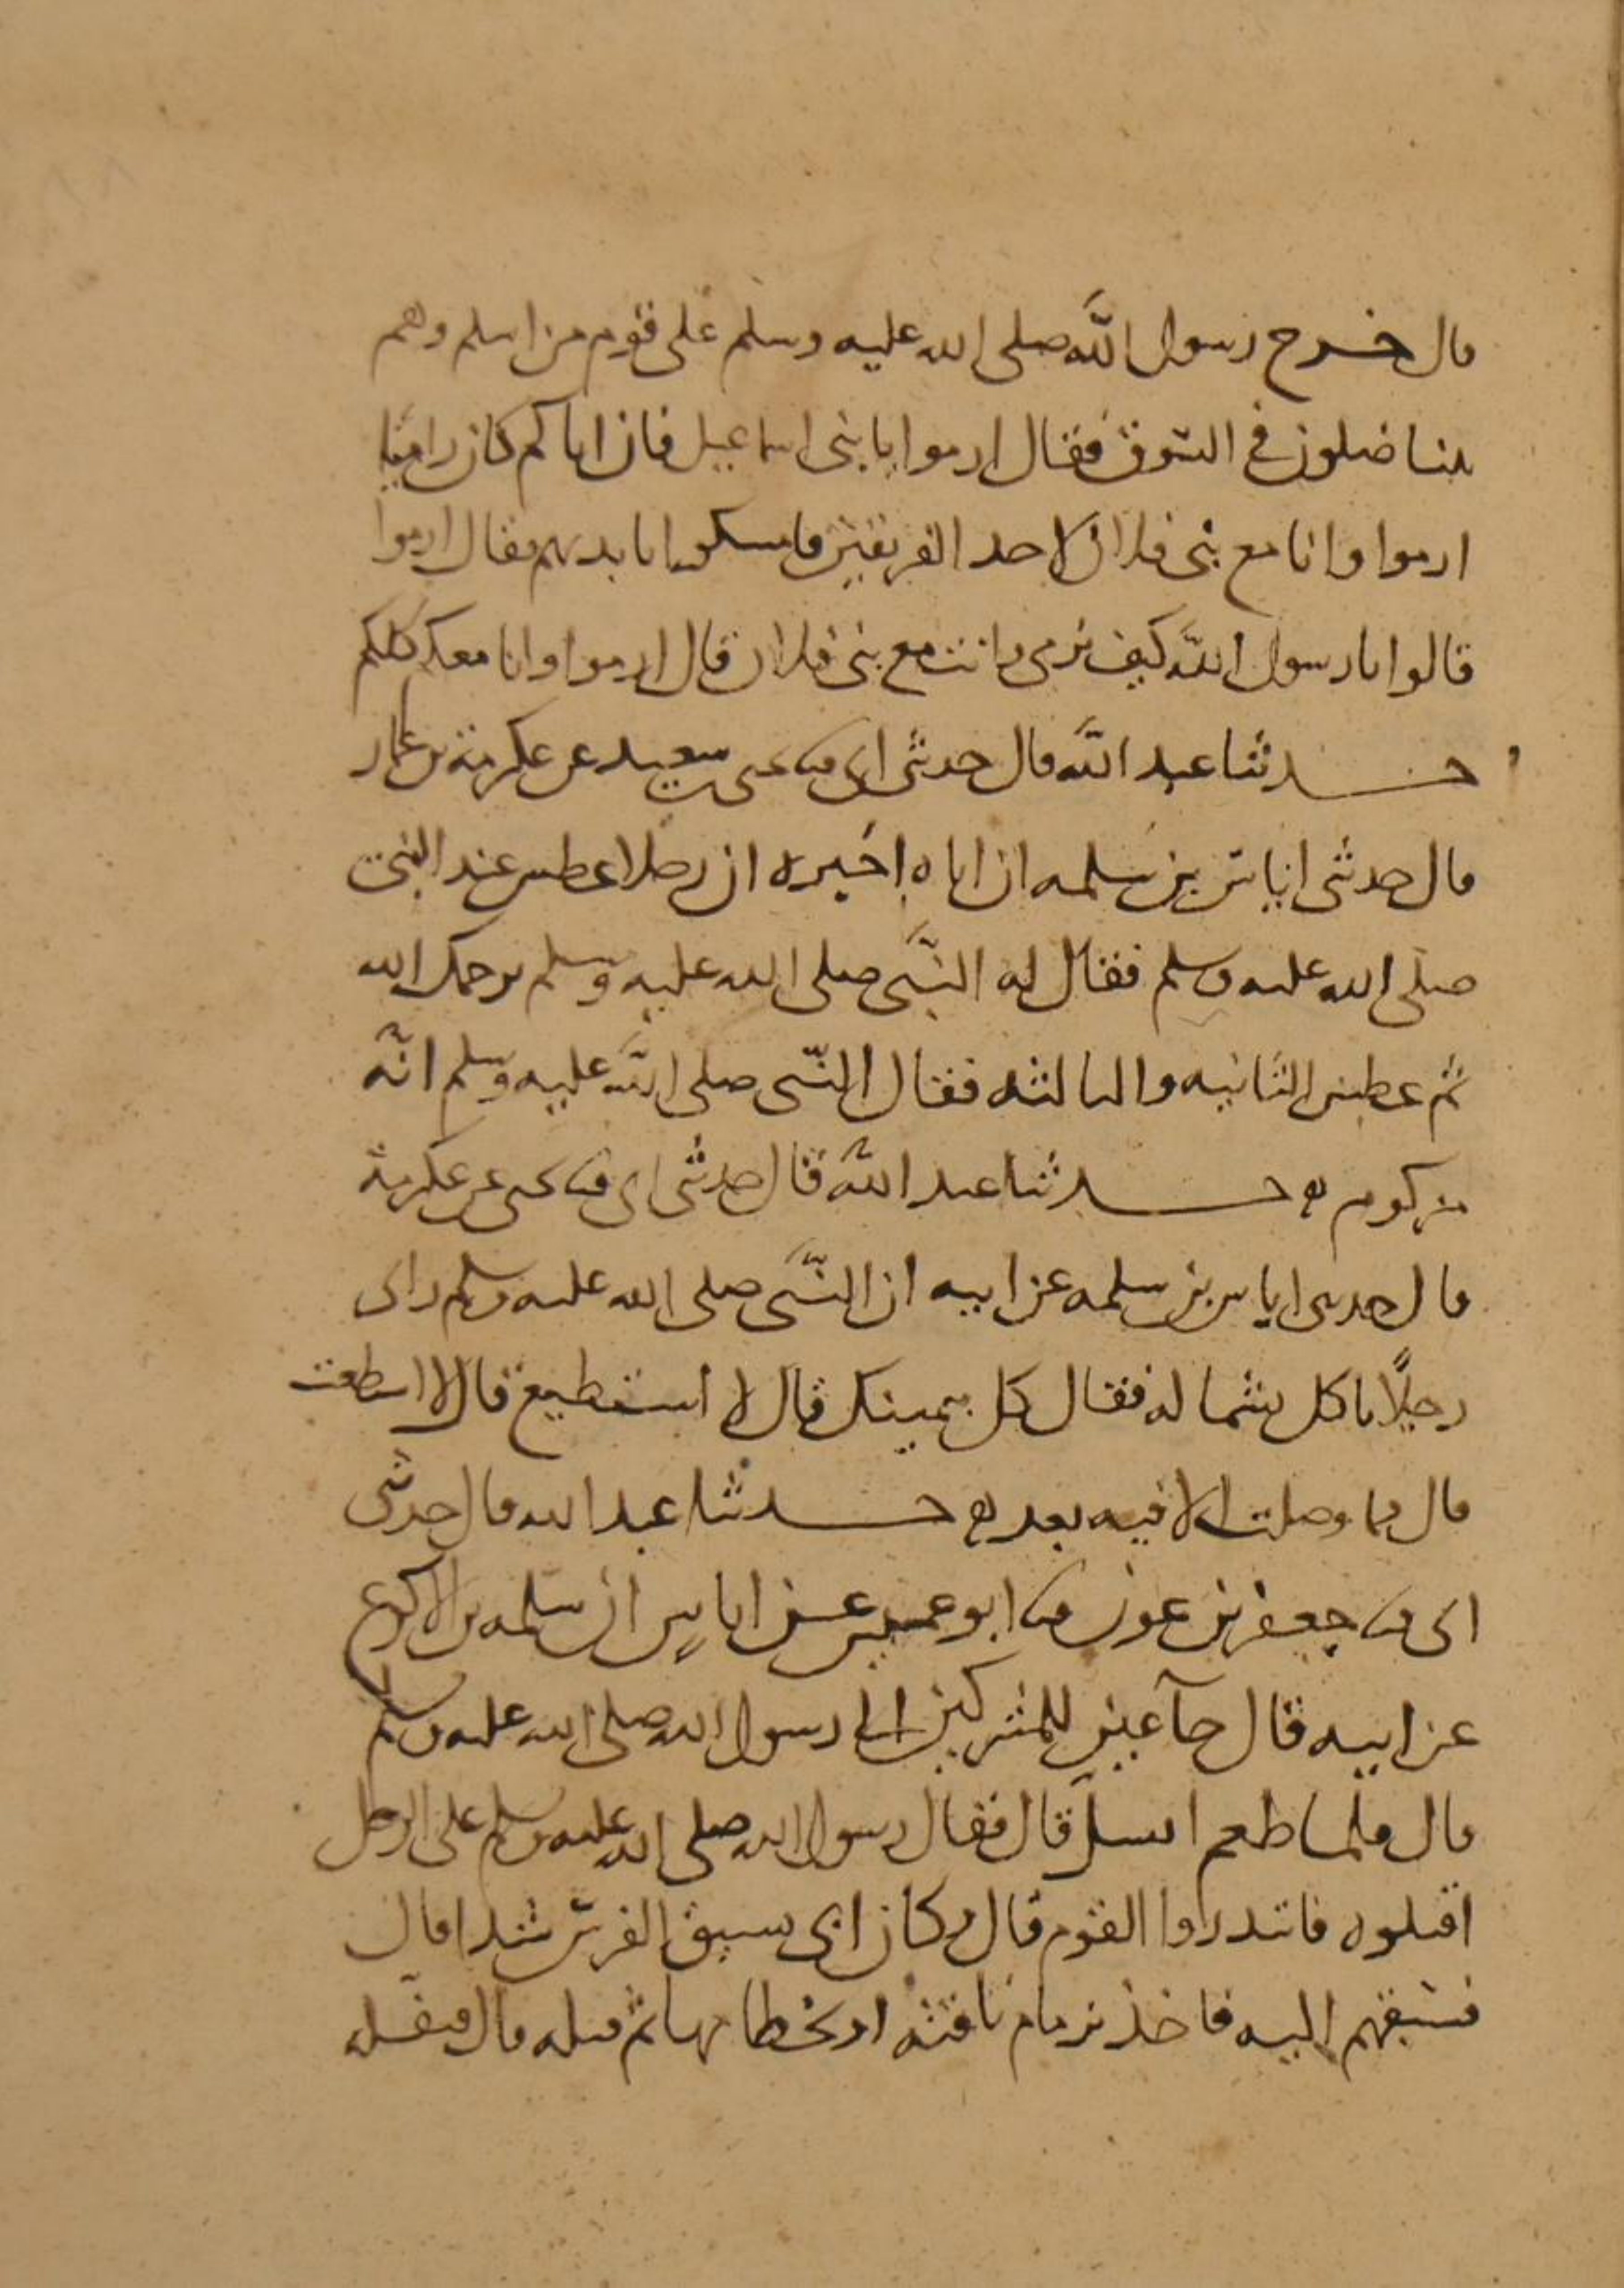 قال خرج رسول الله صلى الله عليه وسلم على قوم من اسلم وهم
يتناضلون في السوق فقال ارموا يا بني اسماعيل فان اباكم كان راميا
ارموا وانا مع بني فلان لاحد الفريقين فامسكوا بايديهم فقال ارموا
قالوا يا رسول الله كيف نرمي وانت مع بني فلان قال ارموا وانا معكم كلكم
حدثنا عبد الله قال حدثني ابي ثنا يحيى بن سعيد عن عكرمة بن عمار
قال حدثني اياس بن سلمه ان اباه اخبره ان رجلا عطس عند النبي
صلى الله عليه وسلم فقال له النبي صلى الله عليه وسلم يرحمك الله
ثم عطس الثانيه والثالثه فقال النبي صلى الله عليه وسلم انه
مزكوم حدثنا عبد الله قال حدثني ابي ثنا يحيى عن عكرمة
قال حدثني اياس بن سلمه عن ابيه ان النبي صلى الله عليه وسلم راى
رجلًا ياكل بشماله فقال كل بيمينك قال لا استطيع قال لا استطعت
قال فما وصلت الى فيه بعد حدثنا عبد الله قال حدثني
ابي ثنا جعفر بن عون ثنا ابو عميس عن اياس بن سلمه بن الاكوع
عن ابيه قال جآ عين للمشركين الى رسول الله صلى الله عليه وسلم
قال فلما طعم انسل قال فقال رسول الله صلى الله عليه وسلم على الرجل
اقتلوه فابتدروا القوم قال وكان ابي يسبق الفرس شدا قال
فسبقهم اليه فاخذ بزمام ناقته او بخطامها ثم قتله قال فنفله